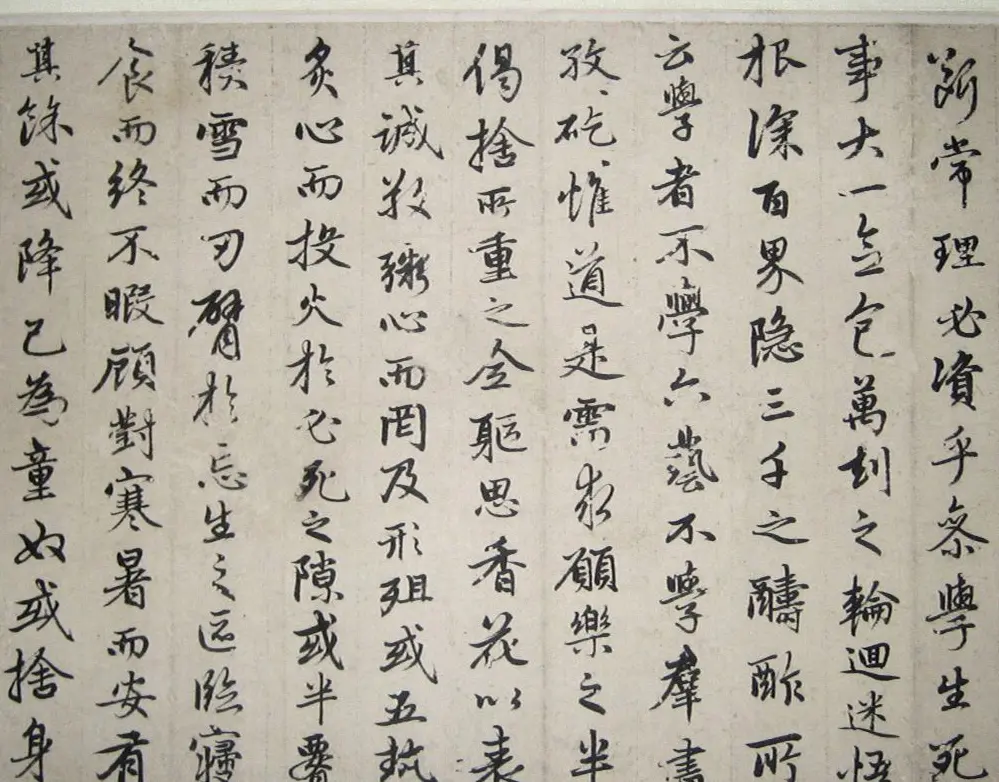 斷常理必資乎參學生死
事大一念包萬刧之輪迴迷悟
根深百界隱三千之醻酢所
云學者不學六藝不學羣書
孜〻矻〻惟道是需求願樂之半
偈捨所重之全軀思香花以表
其誠敬心而罔及形殂或五熱
炙心而投火於必死之隙或半覆
積雪而刃臂於忘生之臨寢
食而終不暇顧對寒暑而安有
其餘或降己為童奴或捨身